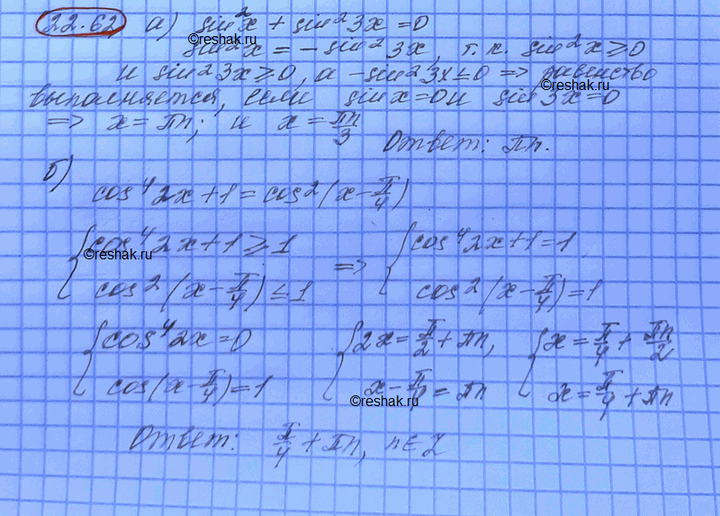 22.62 а) sin²x + sin²3x = 0
sin²x = - sin²3x, т.к. sin²x ≥ 0
и sin²3x ≥ 0, а -sin²3x ≤ 0 => равенство
©reshak.ru
выполняется, если sin x = 0 и sin 3x = 0
=> x = πn; и x = πn/3
Ответ: πn.
б)
cos⁴2x + 1 = cos²(x - π/4)
{ cos⁴2x + 1 ≥ 1 => { cos⁴2x + 1 = 1
©reshak.ru
cos²(x - π/4) ≤ 1 cos²(x - π/4) = 1
{ cos⁴2x = 0 { 2x = π/2 + πn, { x = π/4 + πn/2
cos(x - π/4) = 1 x - π/4 = πn x = π/4 + πn
©reshak.ru
Ответ: π/4 + πn, n ∈ Z